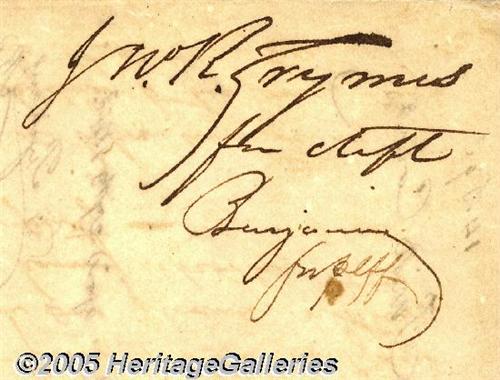 J W. R. Grymes
for deft
Benjamin
for plff
©2005 HeritageGalleries